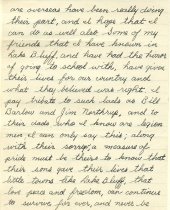 are overseas have been really doing
their part, and I hope that I
can do as well also. Some of my
friends that I have known in
Lake Bluff, and have had the honor
of going to school with, have given
their lives for our country and
what they believed was right. I
pay tribute to such lads as Bill
Barlow and Jim Northrup, and to
their dads who I know are legion
men. I can only say this; along
with their sorrow, a measure of
pride must be theirs to know that
their sons gave their lives that
little towns like Lake Bluff, that
love peace and freedom, can continue
to survive for ever, and never be